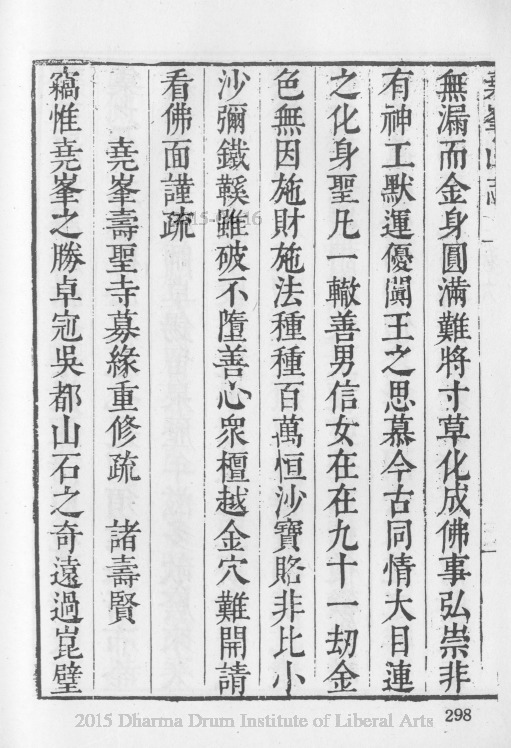 堯峯山志
無漏而金身圓滿難將寸草化成佛事弘崇非
有神工默運優闐王之思慕今古同情大目連
之化身聖凡一轍善男信女在在九十一劫金
色無因施財施法種種百萬恒沙寶賂非比小
沙彌鐵鞵雖破不墮善心衆檀越金穴難開請
看佛面謹疏
堯峯壽聖寺募緣重修疏 諸壽賢
竊惟堯峯之勝卓冠吳都山石之奇遠過崑璧
298
2015 Dharma Drum Institute of Liberal Arts